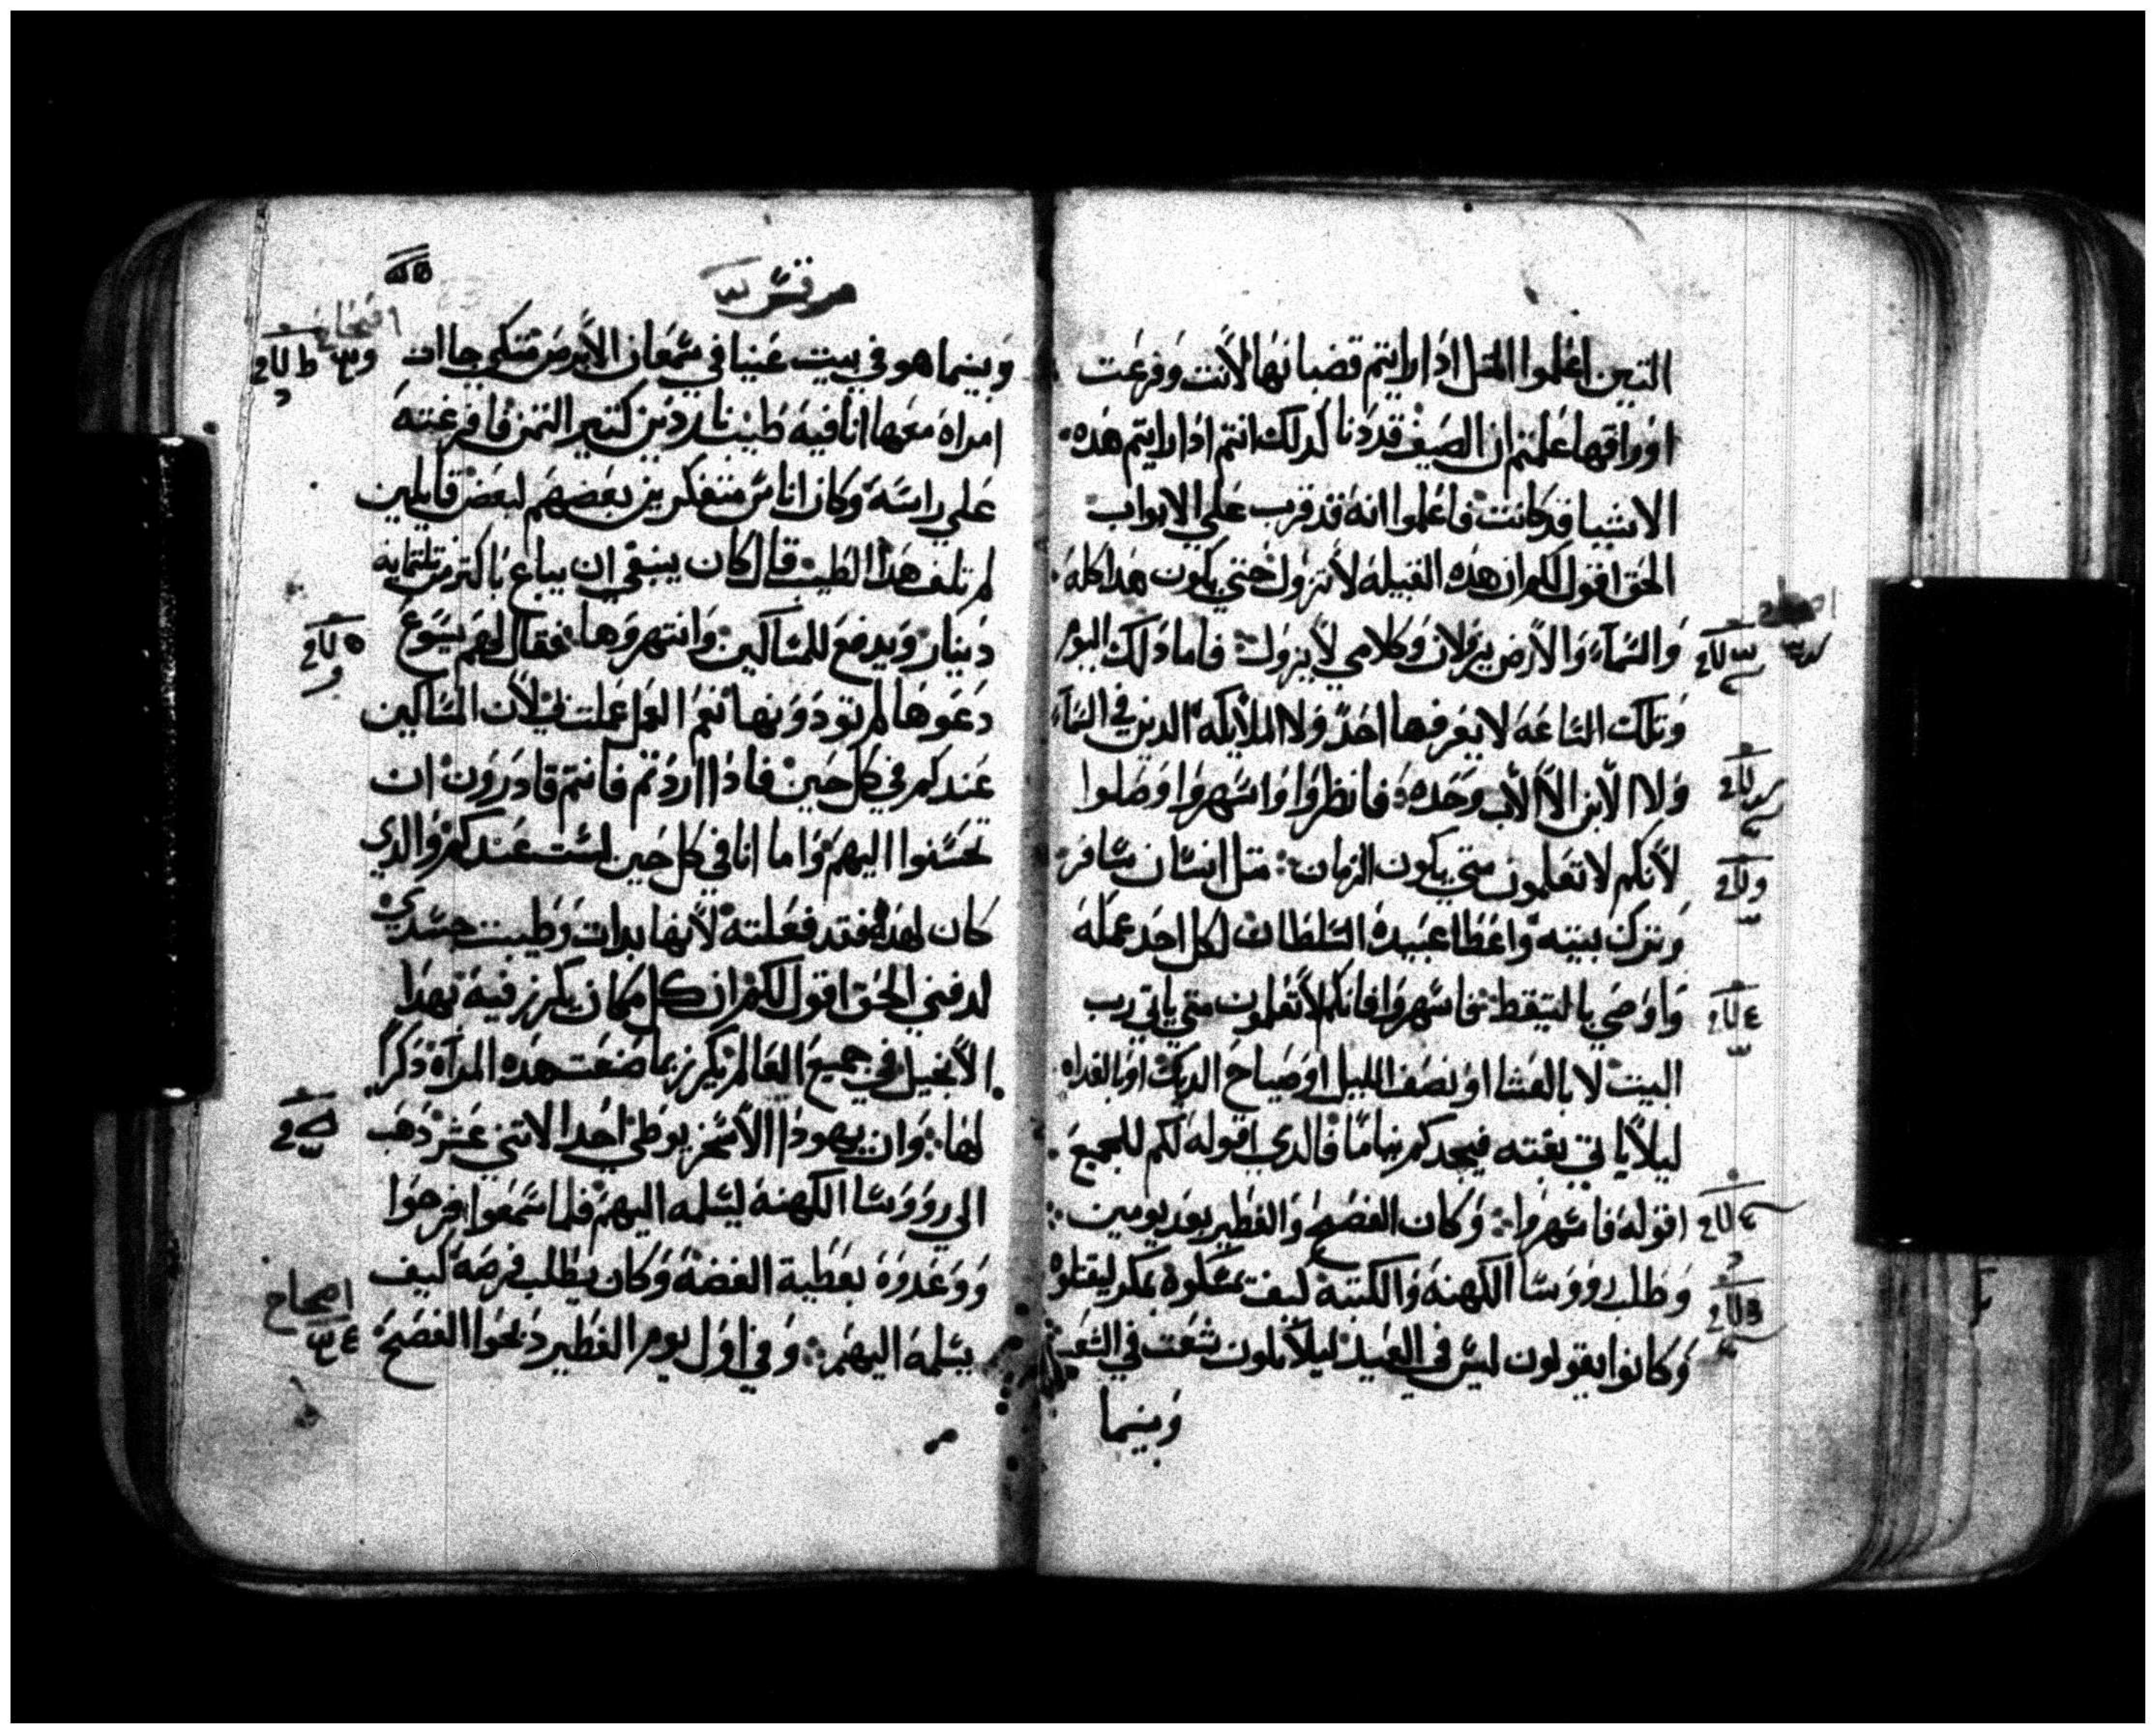 التين اعلموا المتل ادا رايتم قضبانها لانت وفرعت
اوراقها علمتم ان الصيف قد دنا كدلك انتم ادا رايتم هده
الاشيا قد كانت فاعلموا انه قد قرب علي الابواب
الحق اقول لكم ان هده القبيله لا تزول حتي يكون هدا كله
والسماء والارض يزولان وكلامي لا يزول فاما دلك اليوم
وتلك الساعه لا يعرفها احد ولا الملايكه الدين في السماء
ولا الابن الا الاب وحده فانظروا واسهروا وصلوا
لانكم لا تعلمون متي يكون الزمان متل انسان سافر
وترك بيته واعطا عبيده السلطان لكل احد عمله
واوصي بالتيقظ فاسهروا فانكم لا تعلمون متي ياتي رب
البيت لا بالعشا او نصف الليل او صياح الديك او بالغداه
ليلا ياتي بغته فيجدكم نياما فالدي اقوله لكم للجميع
اقوله فاسهروا وكان الفصح والفطير بعد يومين
وطلب رووسا الكهنه والكتبه كيف يمسكوه بمكر ليقتلوه
وكانوا يقولون ليس في العيد ليلا يكون شغت في الشعب
وبينما
مرقس
وبينما هو في بيت عنيا في سمعان الابرص متكي جاات
امراه معها انا فيه طيب ناردين كتير التمن فافرغته
علي راسه وكان اناس متفكرين بعضهم لبعض قايلين
لم تلف هدا الطيب قال كان ينبغي ان يباع باكتر من تلتمايه
دينار ويدفع للمساكين وانتهروها فقال لهم يسوع
دعوها لم تودونها نعم العمل عملت بي لان المساكين
عندكم في كل حين فادا اردتم فانتم قادرون ان
تحسنوا اليهم واما انا في كل حين لست عندكم والدي
كان لهده فقد فعلته لانها بدات وطيبت جسدي
لدفني الحق اقول لكم ان كل مكان يكرز فيه بهدا
الانجيل في جميع العالم يكرز بما صنعت هده المراه دكرا
لها وان يهودا الاسخريوطي احد الاتني عشر دهب
الي روووسا الكهنه ليسلمه اليهم فلما سمعوا فرحوا
ووعدوه بعطية الفضه وكان يطلب فرصه كيف
يسلمه اليهم وفي اول يوم الفطير دبحوا الفصح
اصحاح